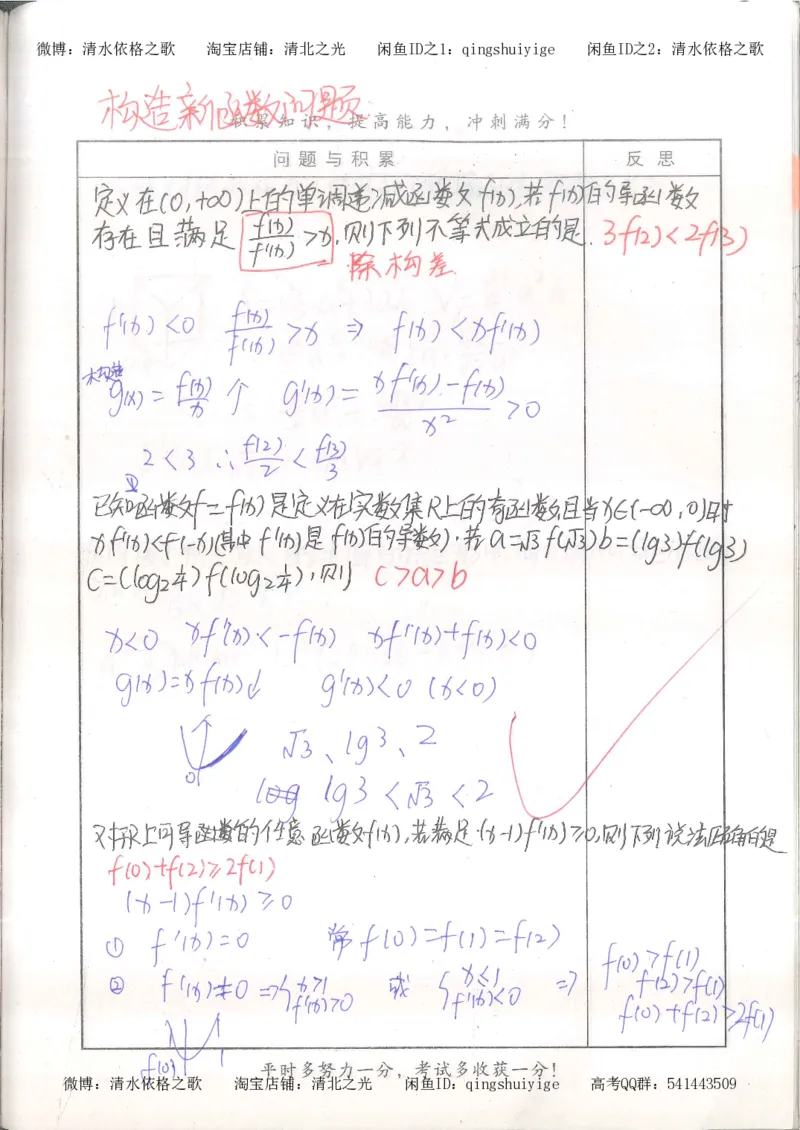 微博：清水依格之歌 淘宝店铺：清北之光 闲鱼ID之1：qingshuiyige 闲鱼ID之2：清水依格之歌
构造新函数问题
积累知识，提高能力，冲刺满分！
问题与积累 反思
定义在(0,+∞)上的单调递减函数f(x),若f(x)的导函数
存在且满足 f(x)/f'(x) >x,则下列不等式成立的是. 3f(2)<2f(3)
除构差
f'(x)<0 f(x)/f'(x) >x ⇒ f(x)<xf'(x)
构造
g(x)=f(x)/x ↑ g'(x)= (xf'(x)-f(x))/x² >0
2<3 ∴ f(2)/2 < f(3)/3
已知函数y=f(x)是定义在实数集R上的奇函数,且当x∈(-∞,0)时
xf'(x)<f(-x)(其中f'(x)是f(x)的导数),若a=√3f(√3) b=(lg3)f(lg3)
c=(log₂¼)f(log₂¼),则 c>a>b
x<0 xf'(x)<-f(x) xf'(x)+f(x)<0
g(x)=xf(x)↓ g'(x)<0 (x<0)
0
√3、lg3、2
lg3<√3<2
对R上可导函数的任意函数f(x),若满足(x-1)f'(x)≥0,则下列说法正确的是
f(0)+f(2)≥2f(1)
(x-1)f'(x)≥0
① f'(x)=0 常 f(0)=f(1)=f(2)
② f'(x)≠0 ⇒{x>1 f'(x)>0 或 {x<1 f'(x)<0 ⇒ f(0)>f(1)
f(2)>f(1)
f(0)+f(2)>2f(1)
f(0) 1
平时多努力一分，考试多收获一分！
微博：清水依格之歌 淘宝店铺：清北之光 闲鱼ID：qingshuiyige 高考QQ群：541443509